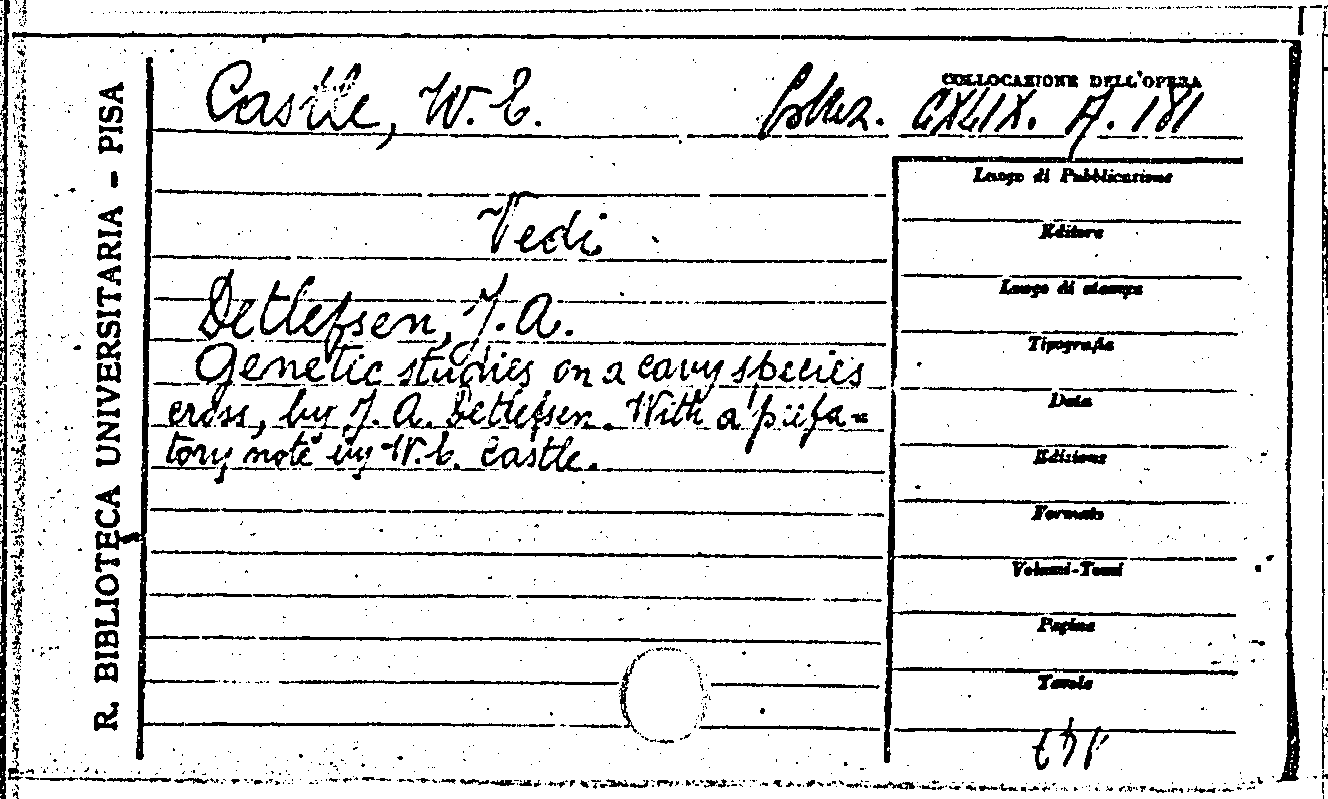 R. BIBLIOTECA UNIVERSITARIA - PISA
COLLOCAZIONE DELL'OPERA
Castle, W. E.
CXLIX. A. 181
Luogo di Pubblicazione
Vedi
Editore
Luogo di stampa
Detlefsen, J. A.
Tipografia
Genetic studies on a cavy species
Data
cross, by J. A. Detlefsen. With a prefa-
tory note by W. E. Castle.
Edizione
Formato
Volumi-Tomi
Pagine
Tavole